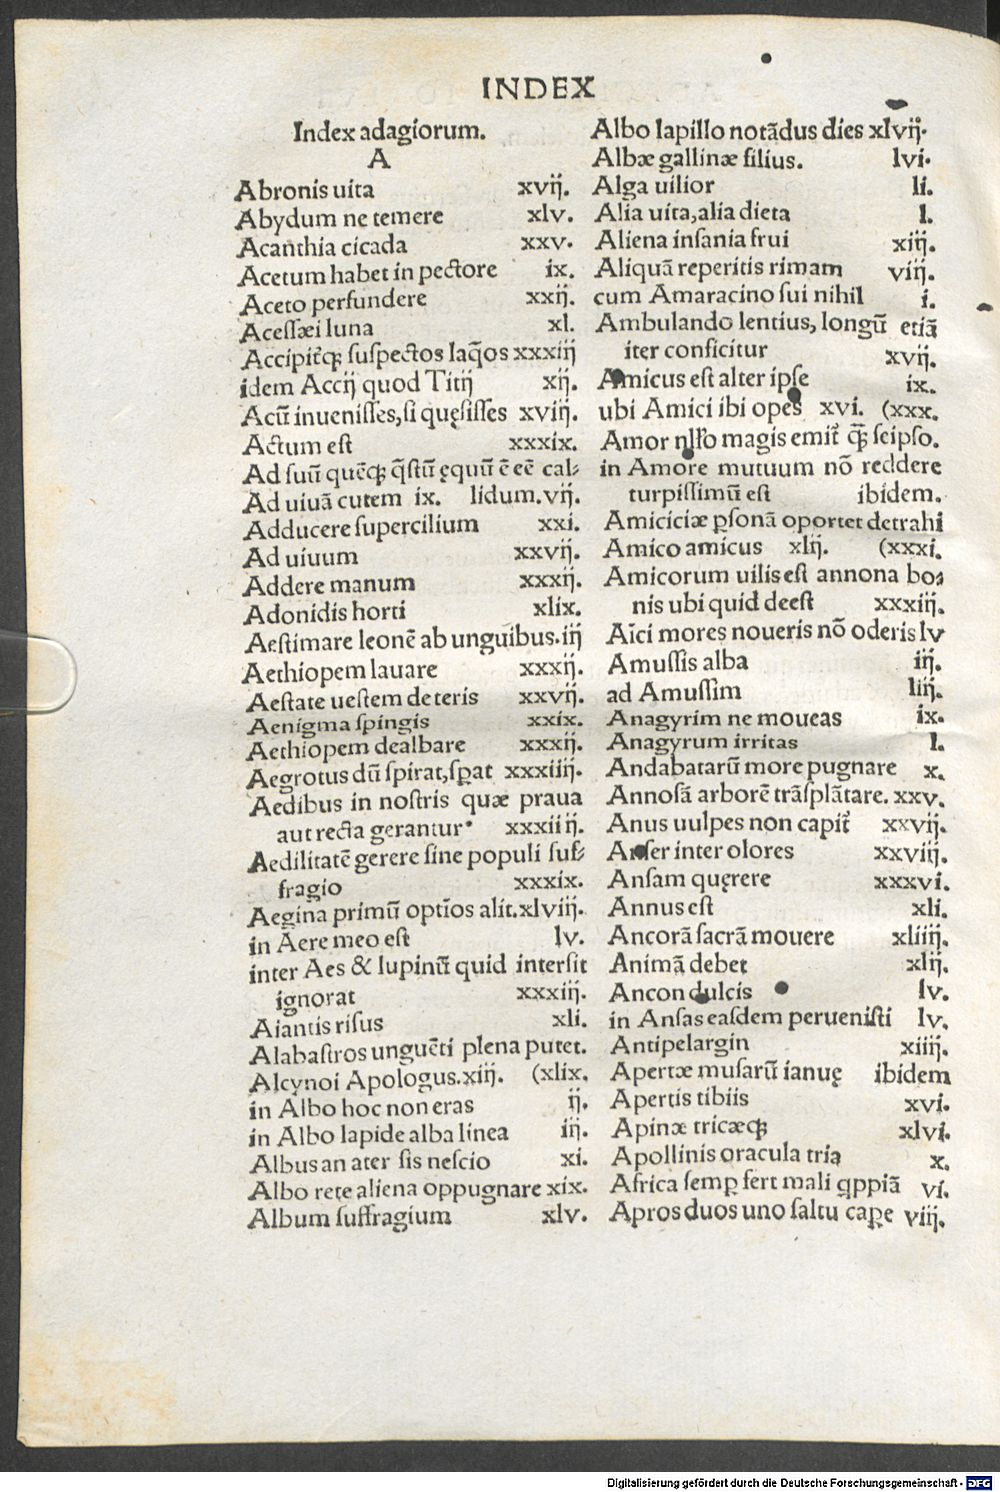 INDEX
Index adagiorum.
A
Abronis uita xvij.
Abydum ne temere xlv.
Acanthia cicada xxv.
Acetum habet in pectore ix.
Aceto perfundere xxij.
Acessæi luna xl.
Accipit̃cꝫ suspectos laq̃os xxxiij
idem Accij quod Titij xij.
Acũ inuenisses, si quęsisses xviij.
Actum est xxxix.
Ad suũ quẽqꝫ q̃stũ ęquũ ẽ eẽ cal⸗
Ad uiuã cutem ix. lidum. vij.
Adducere supercilium xxi.
Ad uiuum xxvij.
Addere manum xxxij.
Adonidis horti xlix.
Aestimare leonẽ ab unguibus. iij
Aethiopem lauare xxxij.
Aestate uestem deteris xxvij.
Aenigma spingis xxix.
Aethiopem dealbare xxxij.
Aegrotus dũ spirat, sꝑat xxxiiij.
Aedibus in nostris quæ praua
aut recta gerantur. xxxiiij.
Aedilitatẽ gerere sine populi suf⸗
fragio xxxix.
Aegina primũ optĩos alit. xlviij.
in Aere meo est lv.
inter Aes & lupinũ quid intersit
ignorat xxxiij.
Aiantis risus xli.
Alabastros unguẽti plena putet.
Alcynoi Apologus. xiij. (xlix.
in Albo hoc non eras ij.
in Albo lapide alba linea iij.
Albus an ater sis nescio xi.
Albo rete aliena oppugnare xix.
Album suffragium xlv.
Albo lapillo notãdus dies xlvij.
Albæ gallinæ filius. lvi.
Alga uilior li.
Alia uita, alia dieta l.
Aliena insania frui xiij.
Aliquã reperitis rimam viij.
cum Amaracino sui nihil i.
Ambulando lentius, longũ etiã
iter conficitur xvij.
Amicus est alter ipse ix.
ubi Amici ibi opes xvi. (xxx.
Amor nr̃o magis emit̃ q̃ꝫ seipso.
in Amore mutuum nõ reddere
turpissimũ est ibidem.
Amiciciæ ꝑsonã oportet detrahi
Amico amicus xlij. (xxxi.
Amicorum uilis est annona bo⸗
nis ubi quid deest xxxiij.
Aĩci mores noueris nõ oderis lv
Amussis alba iij.
ad Amussim liij.
Anagyrim ne moueas ix.
Anagyrum irritas l.
Andabatarũ more pugnare x.
Annosã arborẽ trãsplãtare. xxv.
Anus uulpes non capit̃ xxvij.
Anser inter olores xxviij.
Ansam quęrere xxxvi.
Annus est xli.
Ancorã sacrã mouere xliiij.
Animã debet xlij.
Ancon dulcis lv.
in Ansas easdem peruenisti lv.
Antipelargin xiiij.
Apertæ musarũ ianuę ibidem
Apertis tibiis xvi.
Apinæ tricæqꝫ xlvi.
Apollinis oracula tria x.
Africa semꝑ fert mali qppiã vi.
Apros duos uno saltu caꝑe viij.
Digitalisierung gefördert durch die Deutsche Forschungsgemeinschaft - DFG